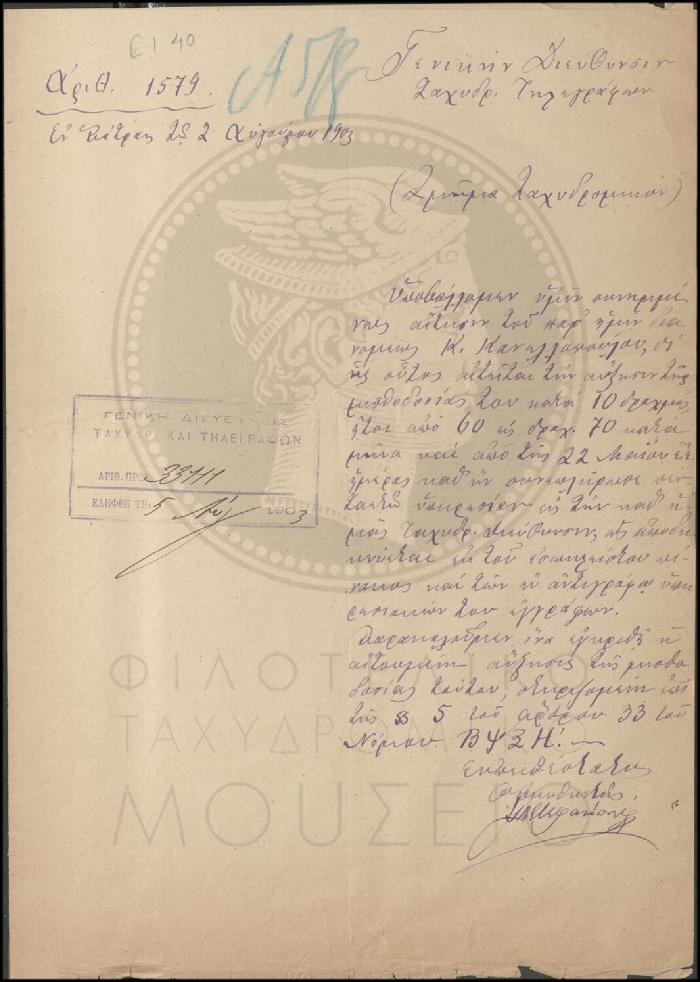 Ε140
Αριθ. 1579.
Α
Γενικὴν Διεύθυνσιν
Ταχυδρ. Τηλεγράφων
Ἐν Πάτραις τῇ 2 Αὐγούστου 1903
(Τμῆμα Ταχυδρομικόν)
Ὑποβάλλομεν ὑμῖν συνημμέ
νως αἴτησιν τοῦ παρ' ἡμῖν δια
νομέως Κ. Κανελλοπούλου, δι'
ἧς οὗτος αἰτεῖται τὴν αὔξησιν τῆς
μισθοδοσίας του κατὰ 10 δραχμὰς
ἤτοι ἀπὸ 60 εἰς δραχ. 70 κατὰ
μῆνα καὶ ἀπὸ τῆς 22 Μαΐου ἐ.ἔ.
ἡμέρας καθ' ἣν συνεπλήρωσε πεν
ταετῆ ὑπηρεσίαν εἰς τὴν καθ' ἡ
μᾶς Ταχυδρ. Διεύθυνσιν, ὡς ἀποδει
κνύεται ἐκ τοῦ ἐσωκλείστου πί
νακος καὶ τῶν ἐν ἀντιγράφῳ ὑπη
ρεσιακῶν του ἐγγράφων.
Παρακαλοῦμεν ἵνα ἐγκριθῇ ἡ
αἰτουμένη αὔξησις τῆς μισθο
δοσίας τούτου, στηριζομένη ἐπὶ
τῆς § 5 τοῦ ἄρθρου 33 τοῦ
Νόμου ΒΨΞΗ'.
Εὐπειθέστατος
ΓΕΝΙΚΗ ΔΙΕΥΘΥΝΣΙΣ
ΤΑΧΥΔΡ. ΚΑΙ ΤΗΛΕΓΡΑΦΩΝ
ΑΡΙΘ. ΠΡΩΤ.
ΕΛΗΦΘΗ ΤΗι 5 Αὐγ 1903
ΦΙΛΟΤΕΛΙΚΟ
ΤΑΧΥΔΡΟΜΙΚΟ
ΜΟΥΣΕΙΟ